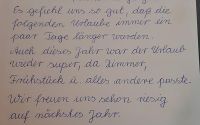 Es gefiehl uns so gut, daß die
folgenden Urlaube immer ein
paar Tage länger wurden.
Auch dieses Jahr war der Urlaub
wieder super, da Zimmer,
Frühstück u. alles andere passte.
Wir freuen uns schon riesig
auf nächstes Jahr.